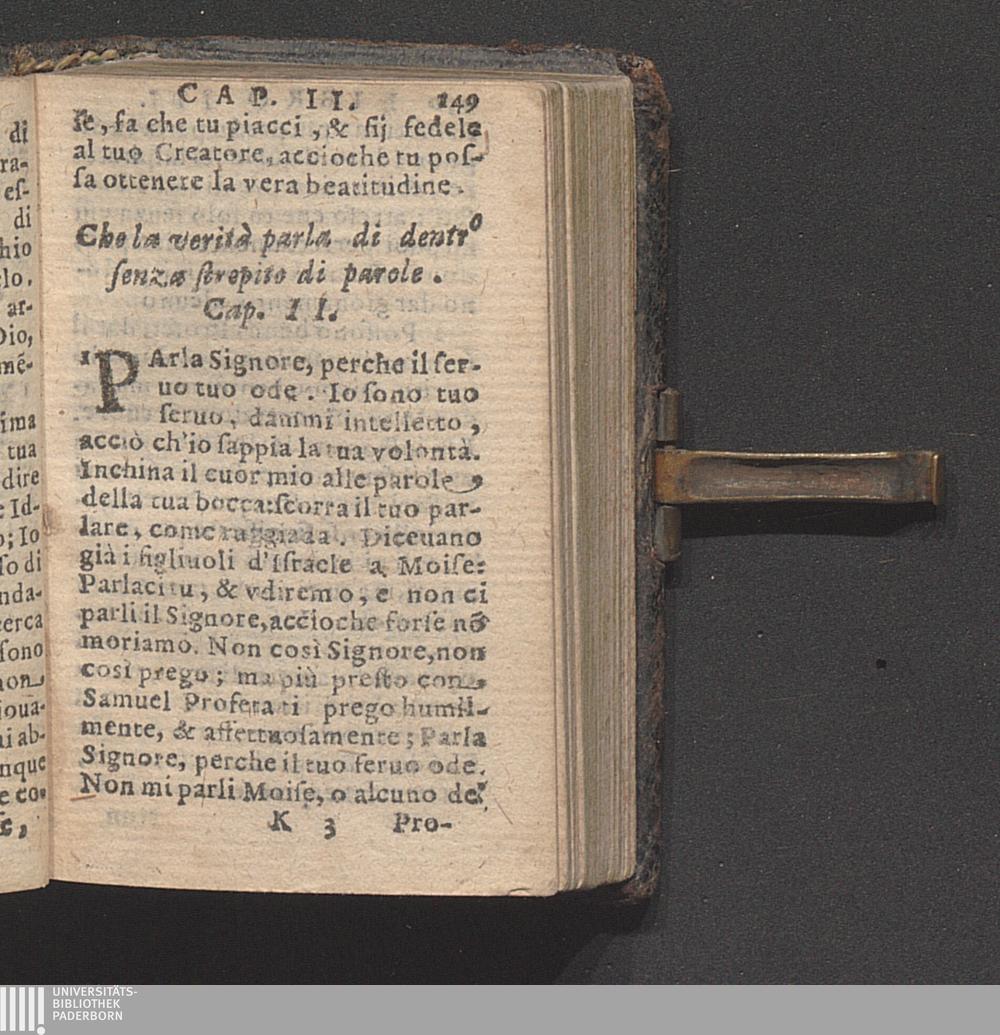 di
ra-
eſ-
di
hio
elo.
ar-
Dio,
mē-
ima
tua
dire
e Id-
o; Io
ſo di
nda-
cerca
ſono
non
ioua-
ai ab-
nque
e co-
ſe,
CAP. II. 149
ſe, fa che tu piacci, & ſij fedele
al tuo Creatore, accioche tu poſ-
ſa ottenere la vera beatitudine.
Che la verità parla di dentro
ſenza ſtrepito di parole.
Cap. II.
1 PArla Signore, perche il ſer-
uo tuo ode. Io ſono tuo
ſeruo, dammi intelletto,
acciò ch'io ſappia la tua volontà.
Inchina il cuor mio alle parole
della tua bocca: ſcorra il tuo par-
lare, come ruggiada. Diceuano
già i figliuoli d'Iſraele a Moiſe:
Parlaci tu, & vdiremo, e non ci
parli il Signore, accioche forſe nō
moriamo. Non così Signore, non
così prego; ma più preſto con
Samuel Profeta ti prego humil-
mente, & affettuoſamente; Parla
Signore, perche il tuo ſeruo ode.
Non mi parli Moiſe, o alcuno de'
K 3 Pro-
UNIVERSITÄTS-
BIBLIOTHEK
PADERBORN